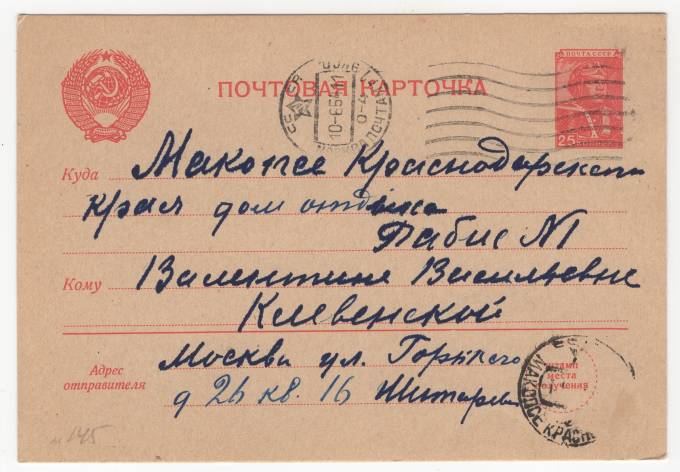 ПОЧТА СССР
25
ПОЧТОВАЯ КАРТОЧКА
СССР
10-6 56
МОСКВА ПОЧТАМТ
Куда Макопсе Краснодарского
края дом отдыха
Кому Валентине Васильевне
Клевенской
Адрес отправителя
Москва ул. Горького
д 26 кв. 16
места
получения
МАКОПСЕ КРАСН
н 145